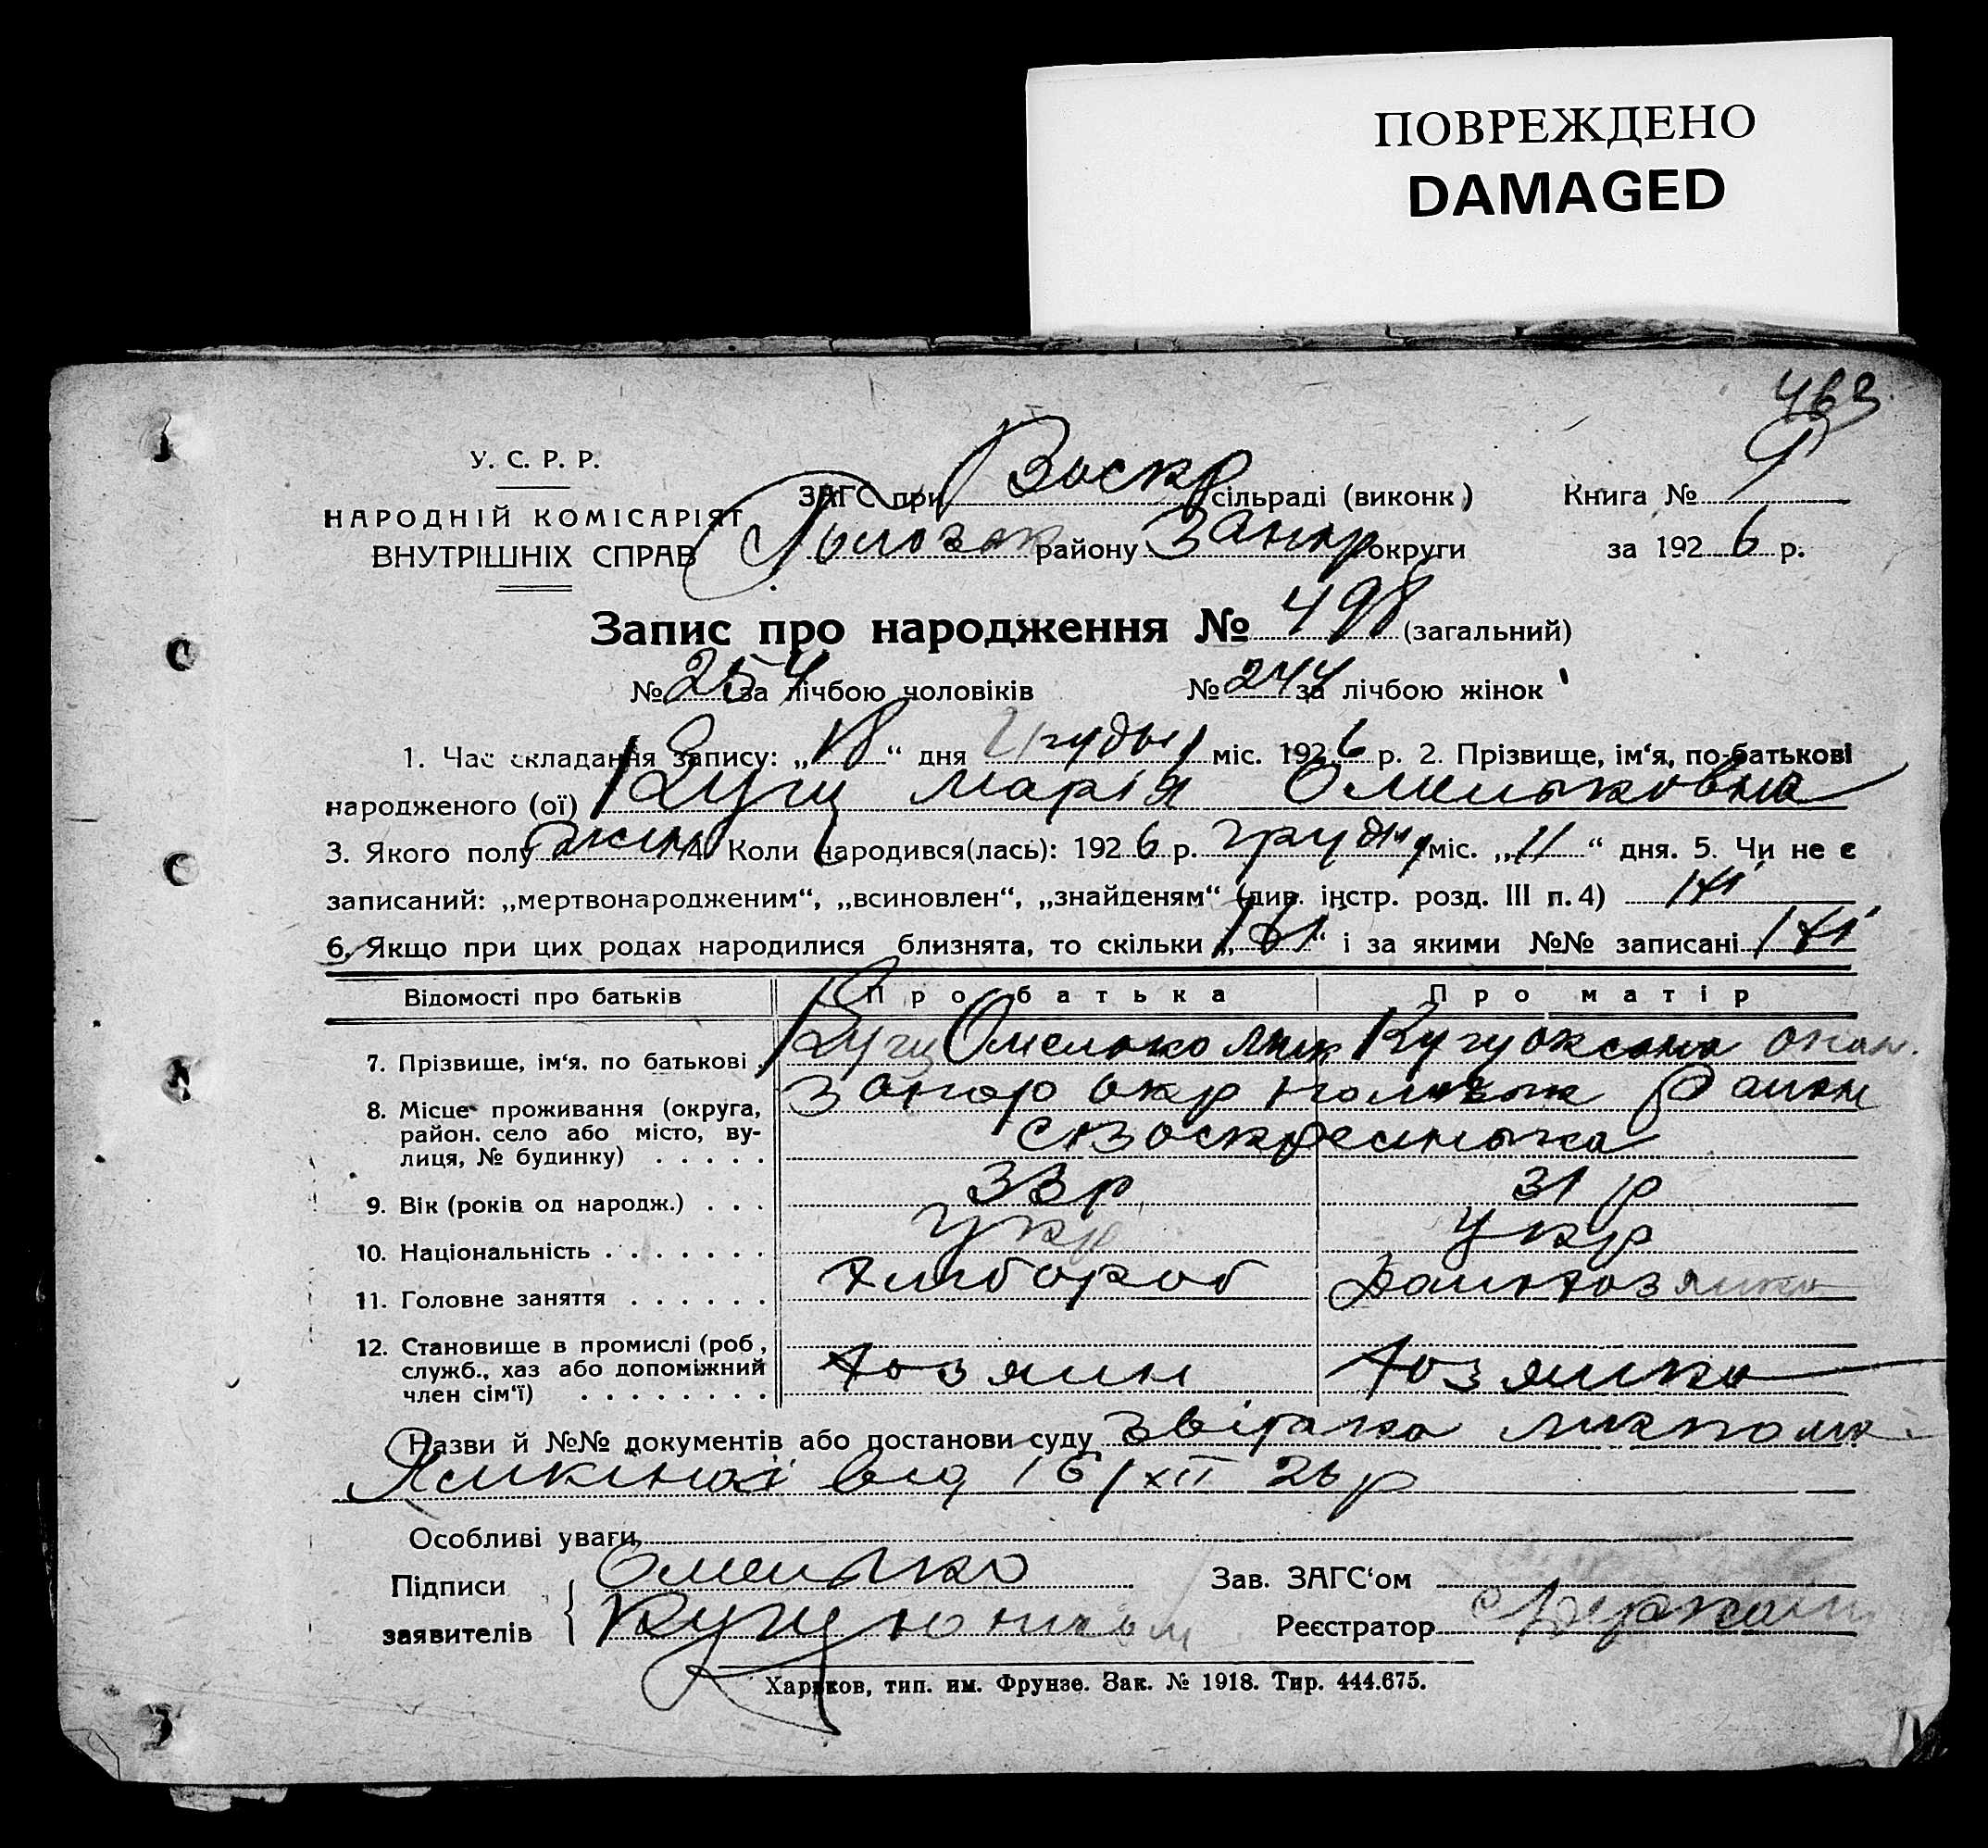 ПОВРЕЖДЕНО
DAMAGED
463
У. С. Р. Р.
НАРОДНІЙ КОМІСАРІЯТ
ВНУТРІШНІХ СПРАВ
ЗАГС при Воскр сільраді (виконк) Книга №
району Запор округи за 1926 р.
Запис про народження № 498 (загальний)
№ 254 за лічбою чоловіків № 244 за лічбою жінок
1. Час складання запису: „18“ дня Грудня міс. 1926 р. 2. Прізвище, ім‘я, по-батькові
народженого (ої) Кущ Марія Омельковна
3. Якого полу жін 4. Коли народився(лась): 1926 р. грудня міс. „11“ дня. 5. Чи не є
записаний: „мертвонародженим“, „всиновлен“, „знайденям“ (див. інстр. розд. III п. 4) ні
6. Якщо при цих родах народилися близнята, то скільки „ні“ і за якими №№ записані ні
Відомості про батьків Про батька Про матір
7. Прізвище, ім‘я, по батькові . Кущ Омелько Кущ Оксана
8. Місце проживання (округа, район, село або місто, вулиця, № будинку) . . . . . Запор окр район
с Воскресенька
9. Вік (років од народж.) . . . 33 р 31 р
10. Національність . . . . . . . укр укр
11. Головне заняття . . . . . . хлібороб домхозяйка
12. Становище в промислі (роб,
служб., хаз або допоміжний
член сім‘ї) . . . . . . . . хозяин хозяйка
Назви й №№ документів або постанови суду
від 16/XII 26 р
Особливі уваги
Підписи Омелько Зав. ЗАГС‘ом
заявителів Кущ Реєстратор
Харьков, тип. им. Фрунзе. Зак. № 1918. Тир. 444.675.